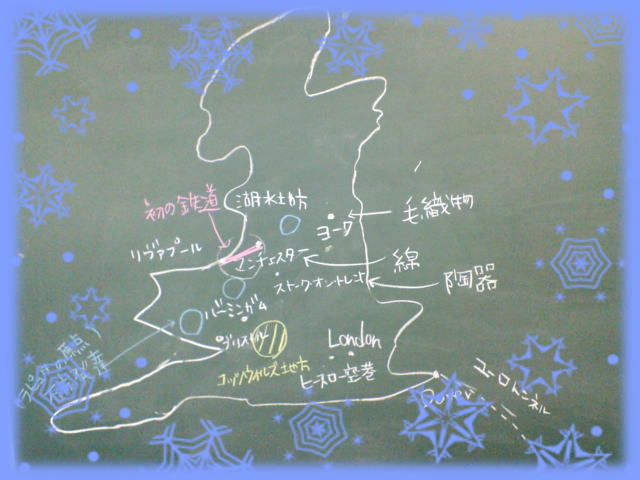 初の鉄道
湖水地方
毛織物
ヨーク
リヴァプール
マンチェスター
線
ストーク・オン・トレント
陶器
バーミンガム
ブリストル
London
コッツウォルズ地方
ヒースロー空港
ユーロトンネル
Dover